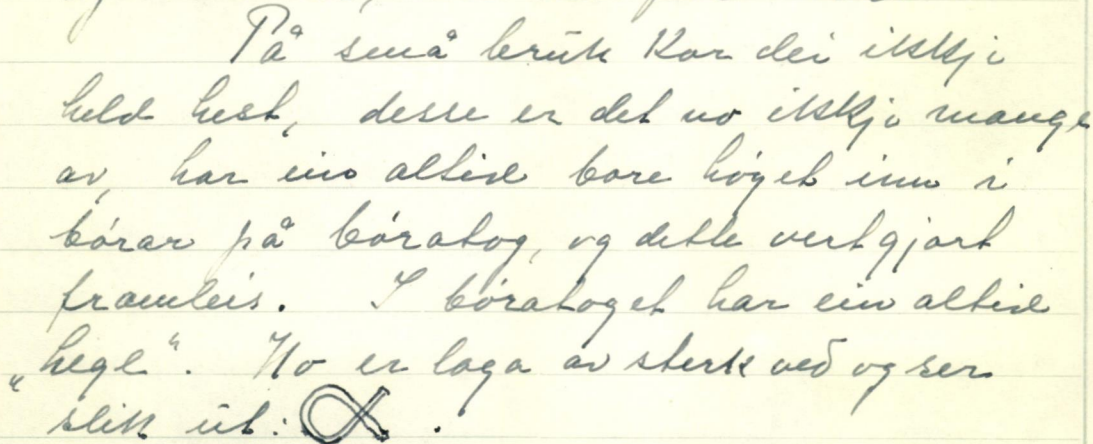 På små bruk kor dei ikkje
held hest, desse er det no ikkje mange
av, har ein altid bore høyet inn i
bórar på bóratog, og dette vert gjort
framleis. I bóratoget har ein altid
„hegl". Ho er laga av sterk ved og ser
slik út: .